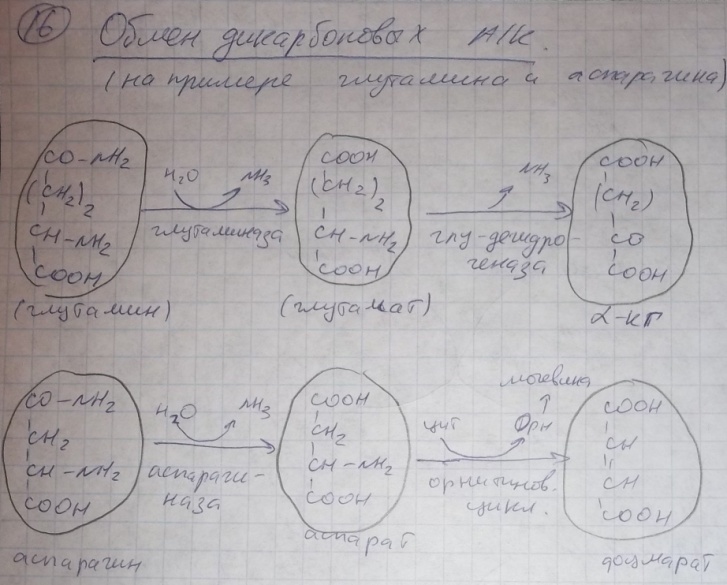 16 Обмен дикарбоновых А/К.
(на примере глутамина и аспарагина)
CO-NH2
(CH2)2
CH-NH2
COOH
(глутамин)
H2O NH3
глутаминаза
COOH
(CH2)2
CH-NH2
COOH
(глутамат)
NH3
глу-дегидро-
геназа
COOH
(CH2)
CO
COOH
α-кг
CO-NH2
CH2
CH-NH2
COOH
аспарагин
H2O NH3
аспараги-
наза
COOH
CH2
CH-NH2
COOH
аспарат
мочевина
цит Орн
орнитинов.
цикл.
COOH
CH
CH
COOH
фумарат